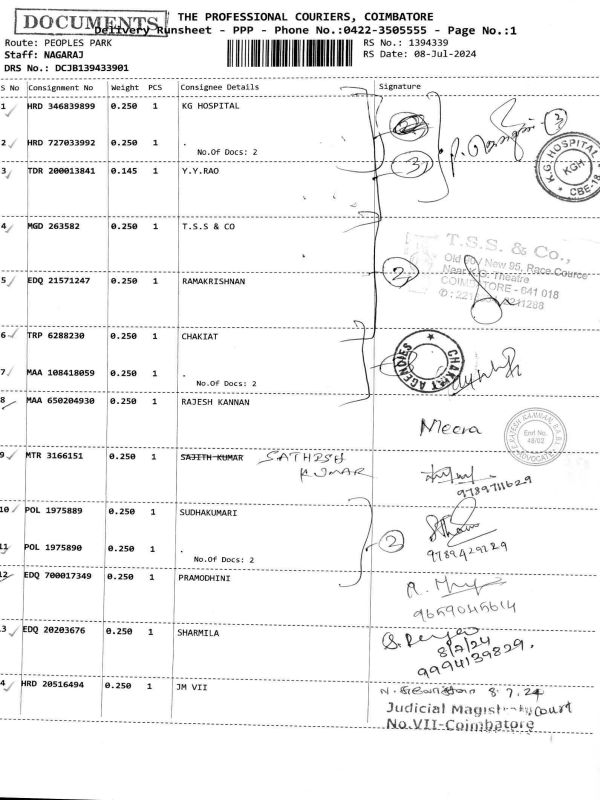 DOCUMENTS
THE PROFESSIONAL COURIERS, COIMBATORE
Delivery Runsheet - PPP - Phone No.:0422-3505555 - Page No.:1
Route: PEOPLES PARK
RS No.: 1394339
Staff: NAGARAJ
RS Date: 08-Jul-2024
DRS No.: DCJB139433901
S No Consignment No Weight PCS Consignee Details Signature
1 HRD 346839899 0.250 1 KG HOSPITAL
2 HRD 727033992 0.250 1 .
No.Of Docs: 2
3
K.G. HOSPITAL
KGH
CBE-18
3 TDR 200013841 0.145 1 Y.Y.RAO
4 MGD 263582 0.250 1 T.S.S & CO
T.S.S. & Co.,
Old 90 / New 95, Race Cource
Near K.G. Theatre
COIMBATORE - 641 018
5 EDQ 21571247 0.250 1 RAMAKRISHNAN
2
6 TRP 6288230 0.250 1 CHAKIAT
CHAKIAT AGENCIES
7 MAA 108418059 0.250 1 .
No.Of Docs: 2
8 MAA 650204930 0.250 1 RAJESH KANNAN
Meera
Enrl No.
48/02
ADVOCATE
9 MTR 3166151 0.250 1 SAJITH KUMAR SATHISH
KUMAR
9789711629
10 POL 1975889 0.250 1 SUDHAKUMARI
11 POL 1975890 0.250 1 .
No.Of Docs: 2
2
9789429289
12 EDQ 700017349 0.250 1 PRAMODHINI
9659045614
3 EDQ 20203676 0.250 1 SHARMILA
8/7/24
9994139829.
4 HRD 20516494 0.250 1 JM VII
8.7.24
Judicial Magistrate Court
No.VII-Coimbatore